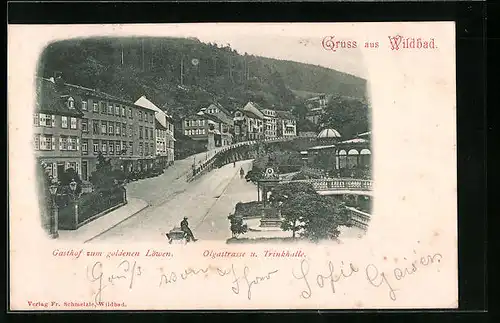 Gruss aus Wildbad.
Gasthof zum goldenen Löwen. Olgastrasse u. Trinkhalle.
Gruß Sofie
Verlag Fr. Schmelzle, Wildbad.